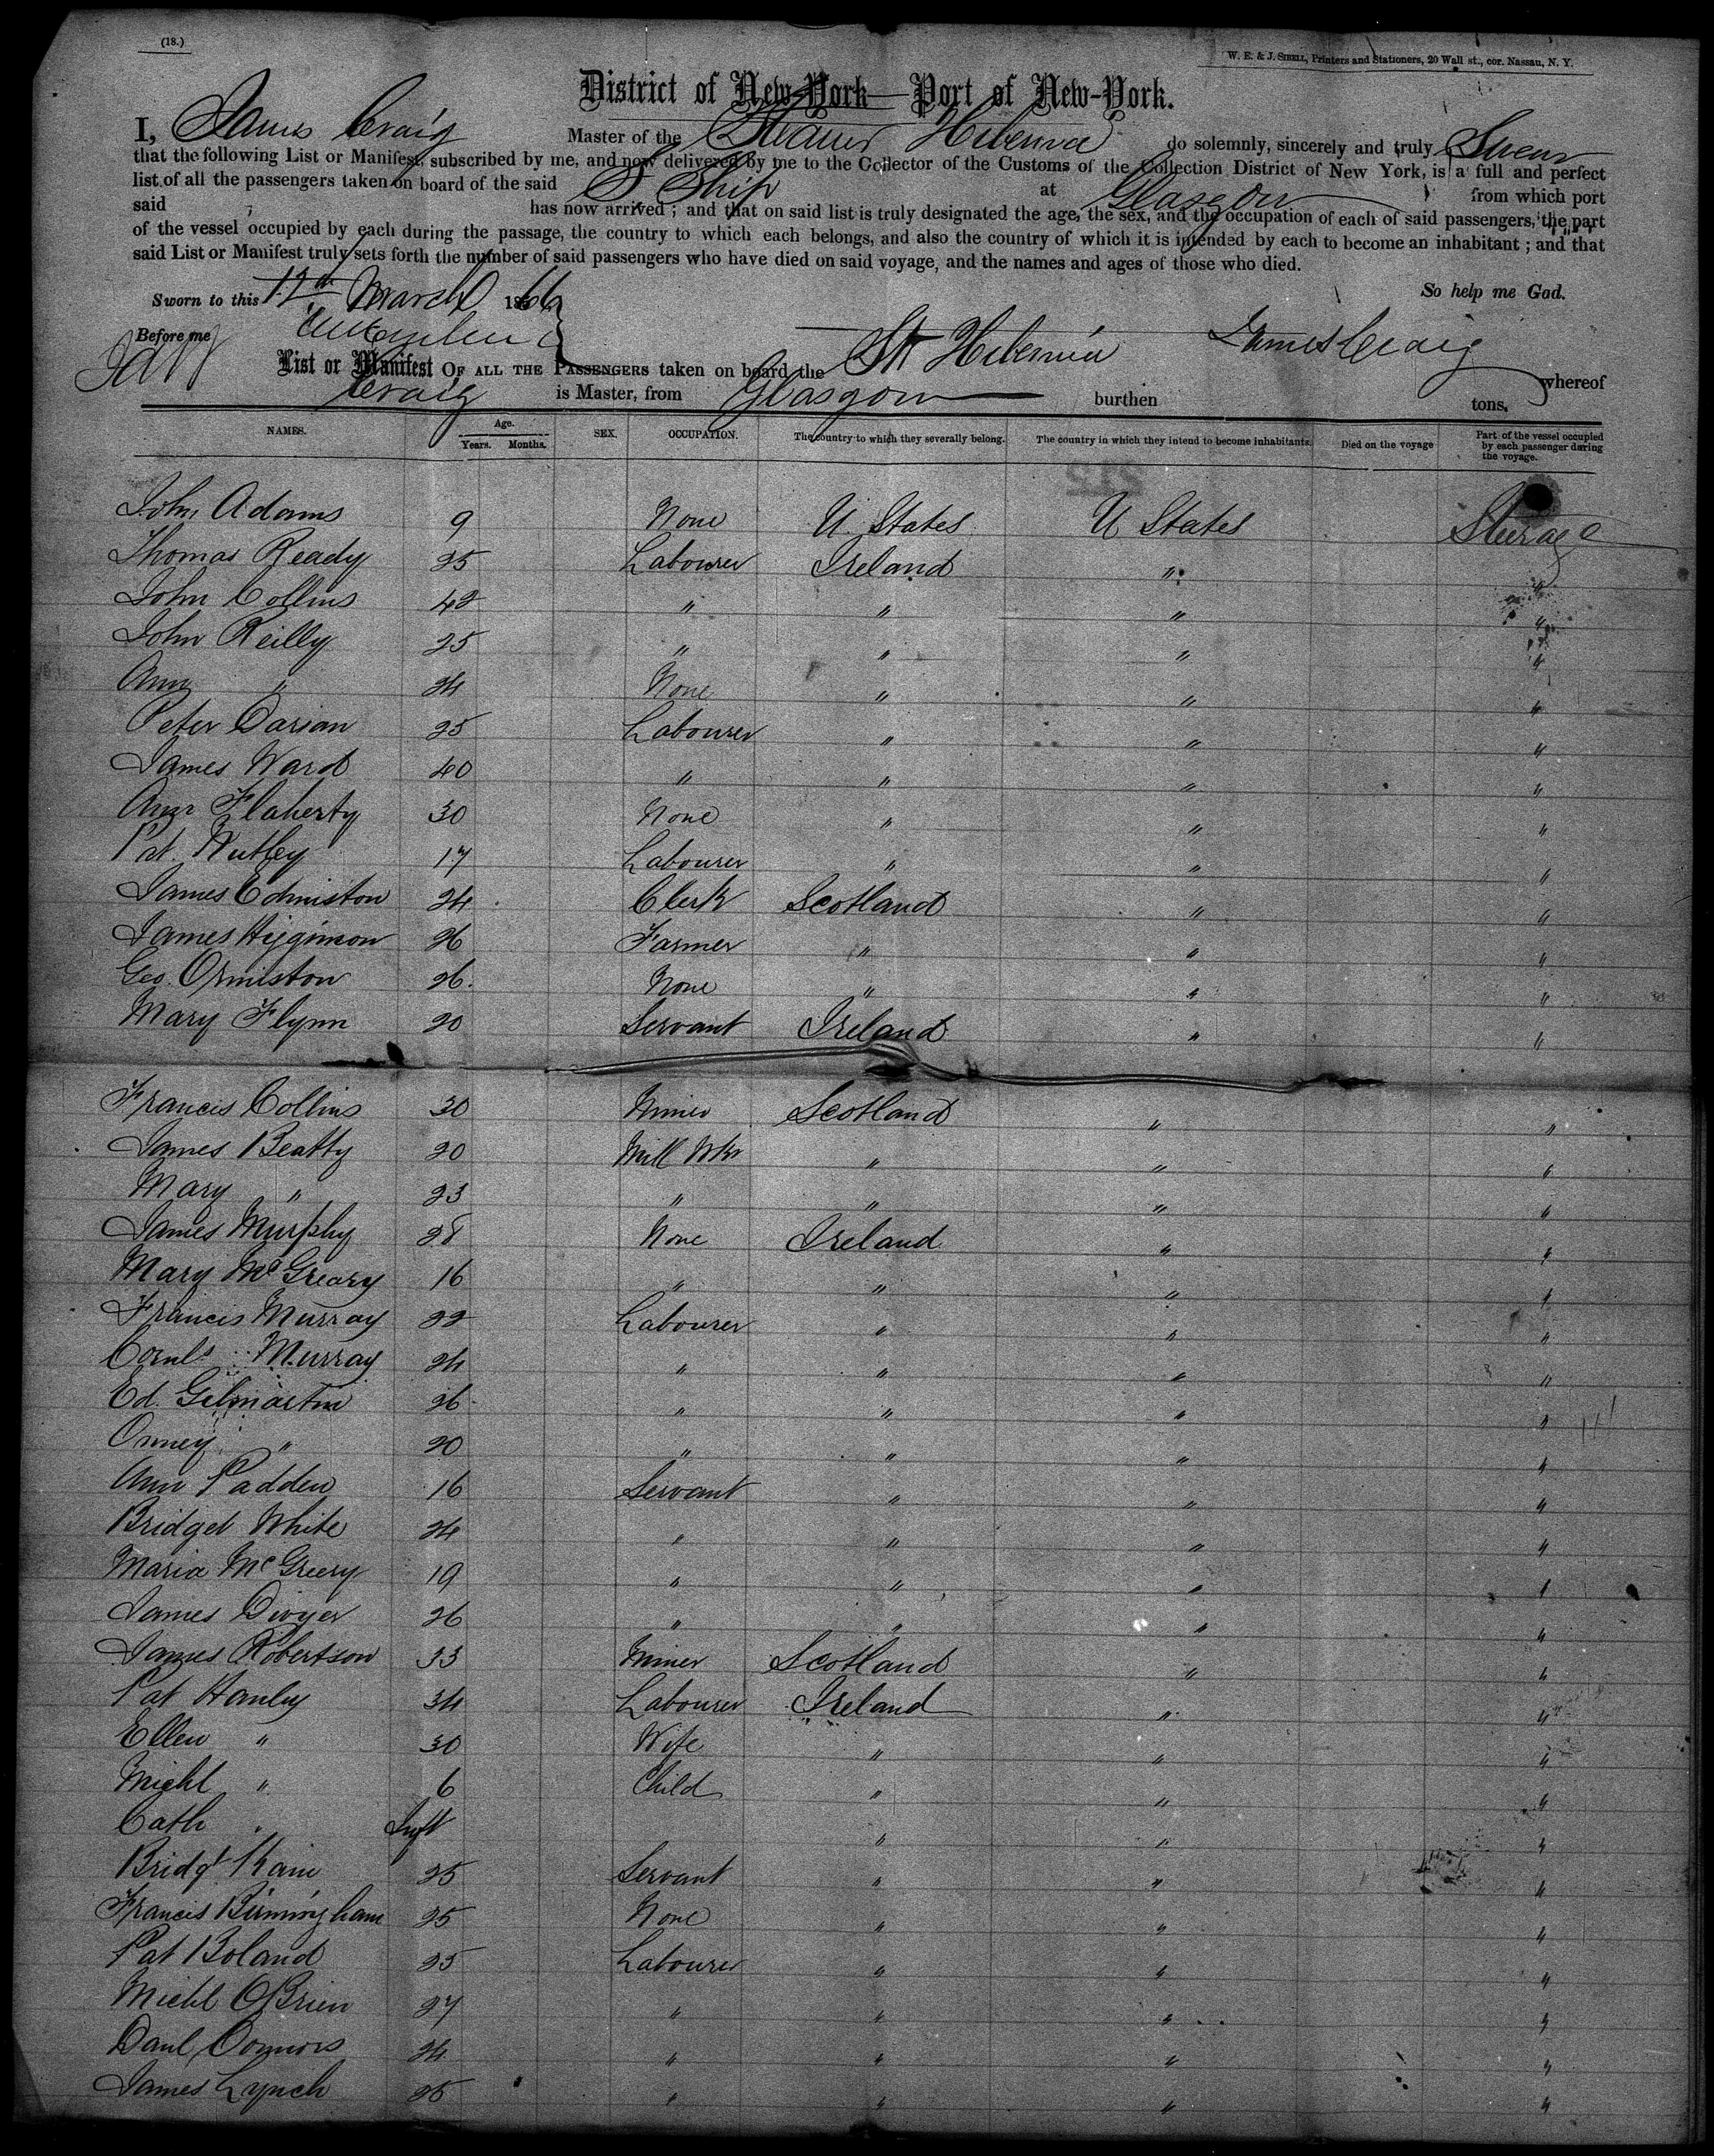 (18.)
W. E. & J. SIBELL, Printers and Stationers, 20 Wall st., cor. Nassau, N. Y.
District of New-York—Port of New-York.
I, James Craig Master of the Steamer Hibernia do solemnly, sincerely and truly Swear
that the following List or Manifest, subscribed by me, and now delivered by me to the Collector of the Customs of the Collection District of New York, is a full and perfect
list of all the passengers taken on board of the said S Ship at Glasgow from which port
said has now arrived; and that on said list is truly designated the age, the sex, and the occupation of each of said passengers, the part
of the vessel occupied by each during the passage, the country to which each belongs, and also the country of which it is intended by each to become an inhabitant; and that
said List or Manifest truly sets forth the number of said passengers who have died on said voyage, and the names and ages of those who died.
Sworn to this 12th March 1866 So help me God.
Before me James Craig
List or Manifest OF ALL THE PASSENGERS taken on board the SS Hibernia whereof
Craig is Master, from Glasgow burthen tons.
NAMES. Age. Years. Months. SEX. OCCUPATION. The country to which they severally belong. The country in which they intend to become inhabitants. Died on the voyage Part of the vessel occupied by each passenger during the voyage.
212
John Adams 9 None U. States U States Steerage
Thomas Ready 25 Labourer Ireland " "
John Collins 42 " " " "
John Reilly 25 " " " "
Ann " 24 None " " "
Peter Darian 25 Labourer " " "
James Ward 40 " " " "
Ann Flaherty 30 None " " "
Pat. Nutley 17 Labourer " " "
James Edmiston 24 Clerk Scotland " "
James Higginson 26 Farmer " " "
Geo. Ormiston 26. None " " "
Mary Flynn 20 Servant Ireland " "
Francis Collins 30 Miner Scotland " "
James Beatty 20 Mill Wkr " " "
Mary " 23 " " " "
James Murphy 28 None Ireland " "
Mary McGreary 16 " " " "
Francis Murray 22 Labourer " " "
Cornls Murray 24 " " " "
Ed. Gilmartin 26 " " " "
Onney " 20 " " " "
Ann Padden 16 Servant " " "
Bridget White 24 " " " "
Maria McGreery 19 " " " "
James Dwyer 26 " " " "
James Robertson 33 Miner Scotland " "
Pat Hanley 34 Labourer Ireland " "
Ellen " 30 Wife " " "
Michl " 6 Child " " "
Cath " Inft " " "
Bridgt Kain 25 Servant " " "
Francis Birmingham 25 None " " "
Pat Boland 25 Labourer " " "
Michl OBrien 27 " " " "
Danl Connors 24 " " " "
James Lynch 25 " " " "